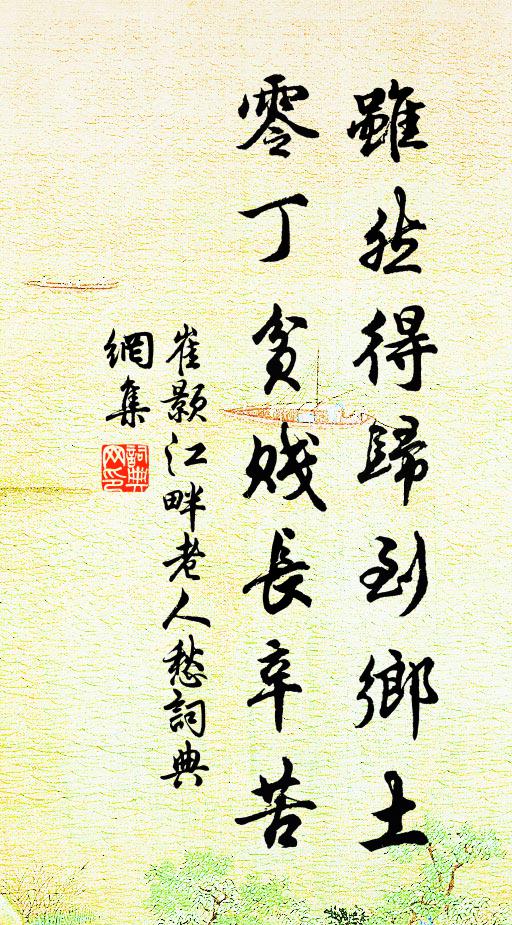 雖然得歸到鄉土
零丁貧賤長辛苦
崔顥江畔老人愁詞典
網集
詞典
网印